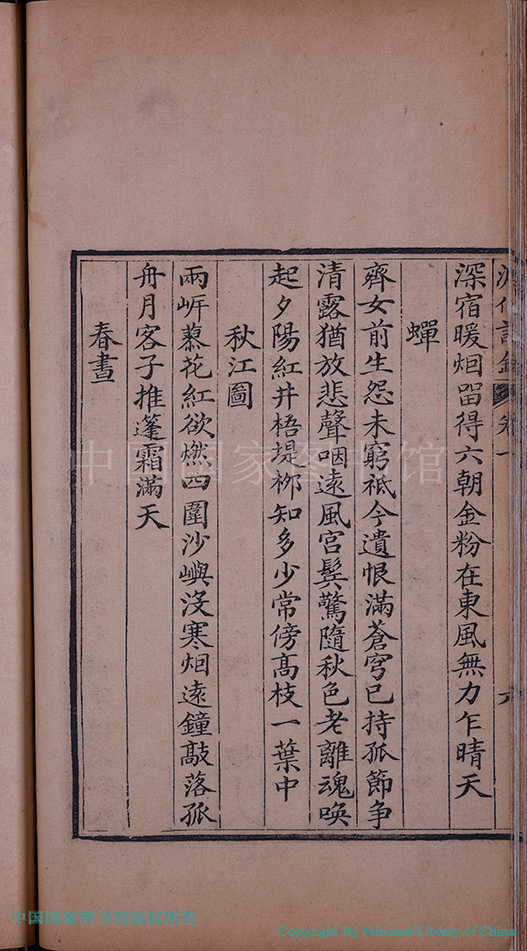 卷一
六
深宿暖烟留得六朝金粉在東風無力乍晴天
蟬
齊女前生怨未窮祗今遺恨滿蒼穹已持孤節争
清露猶放悲聲咽遠風宮鬂驚隨秋色老離魂喚
起夕陽紅井梧堤栁知多少常傍髙枝一葉中
秋江圖
兩岍蓼花紅欲燃四圍沙嶼没寒烟逺鐘敲落孤
舟月客子推蓬霜滿天
春晝
中国国家图书馆
中国国家图书馆版权所有
Copyright By National Library of China